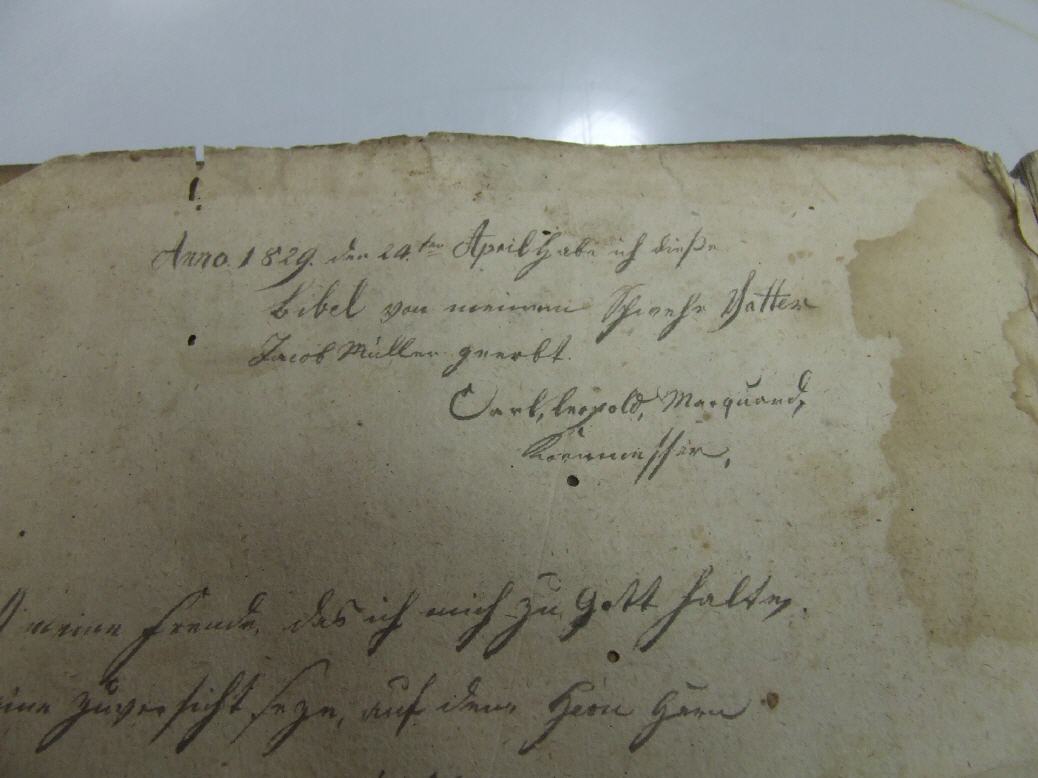 Anno. 1829. den 24.ten April habe ich dieße
Bibel von meinem Schwehr Vatter
Jacob Müller geerbt.
Carl, Leopold, Marquard,
Kornmesser,
meine freude, das ich mich zu Gott halte,
zuversicht seze, auf denn Herrn